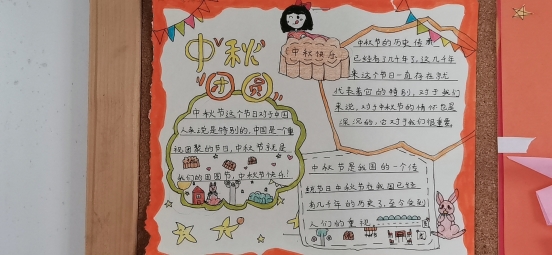 中秋
团员
中秋快乐
中秋节这个节日对于中国
人来说是特别的，中国是一个重
视团聚的节日，中秋节就是
我们的团圆节，中秋节快乐！
中秋节的历史传
已经有了几千年了，这几千年
来这个节日一直存在就
代表着它的特别，对于我们
来说，对于中秋节的情怀也是
深沉的，它对于我们很重要
中秋节是我国的一个传
统节日中秋节在我国已经
有几千年的历史了，至今受到
人们的重视